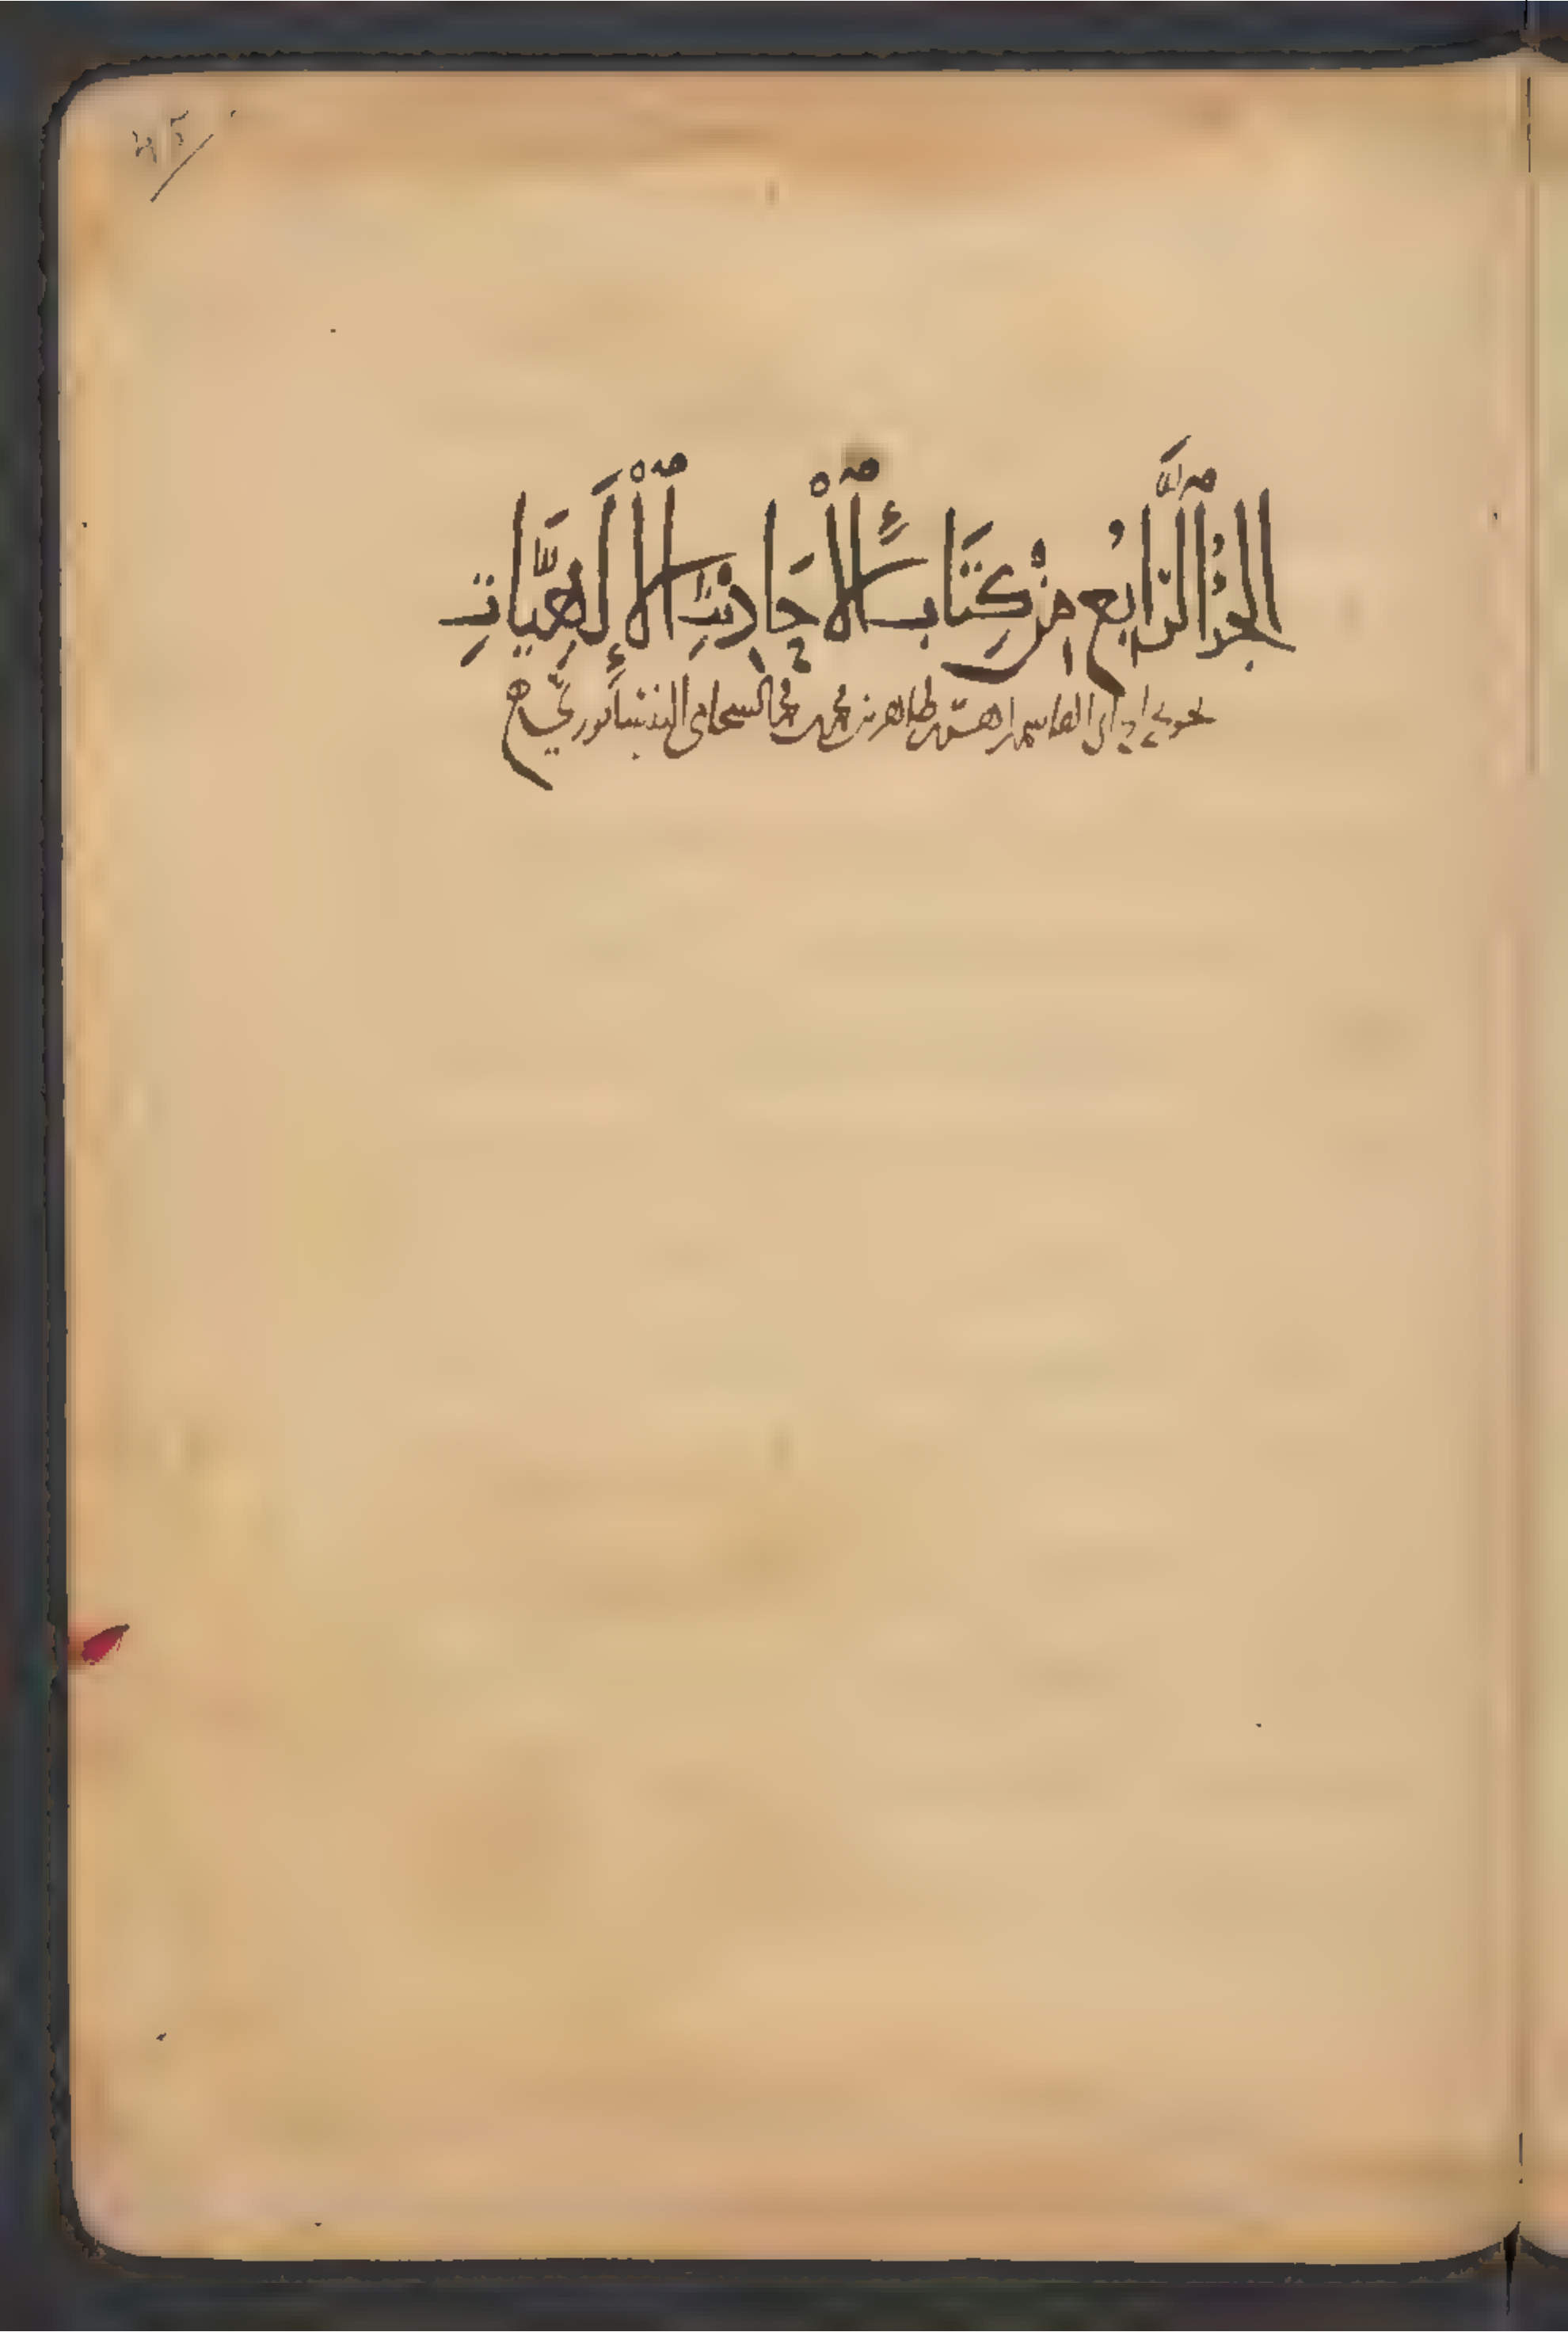 ٤٥
الجُزْءُ ٱلرَّابِعُ مِنْ كِتَابِ ٱلْأَحَادِيثِ ٱلْإِلَهِيَّاتِ
ابي القاسم زاهر بن طاهر بن محمد بن محمد الشحامي النيسابوري